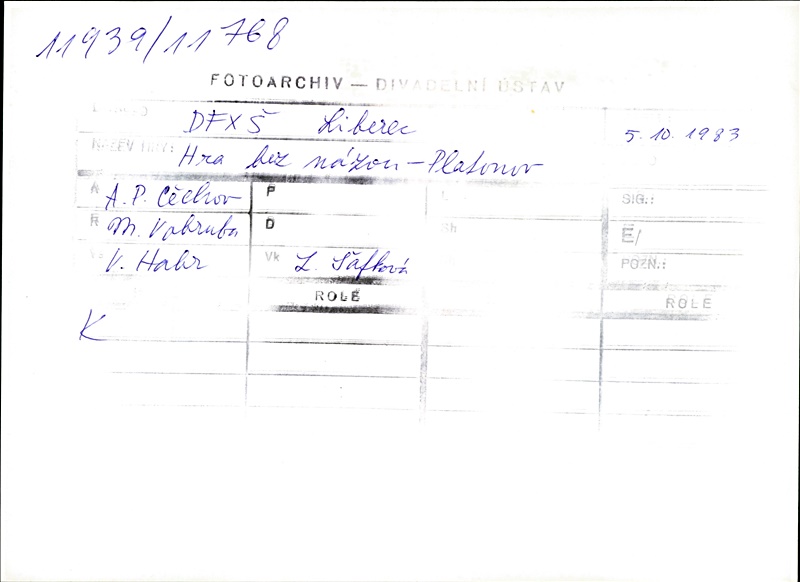 11939/11768
FOTOARCHIV — DIVADELNÍ ÚSTAV
DFXŠ Liberec 5.10.1983
NÁZEV HRY: Hra bez názvu - Platonov
A A.P. Čechov P SIG.:
R M. Vobruba D Sh Ě/
V. Habr Vk L. Šafková POZN.:
ROLE ROLE
K